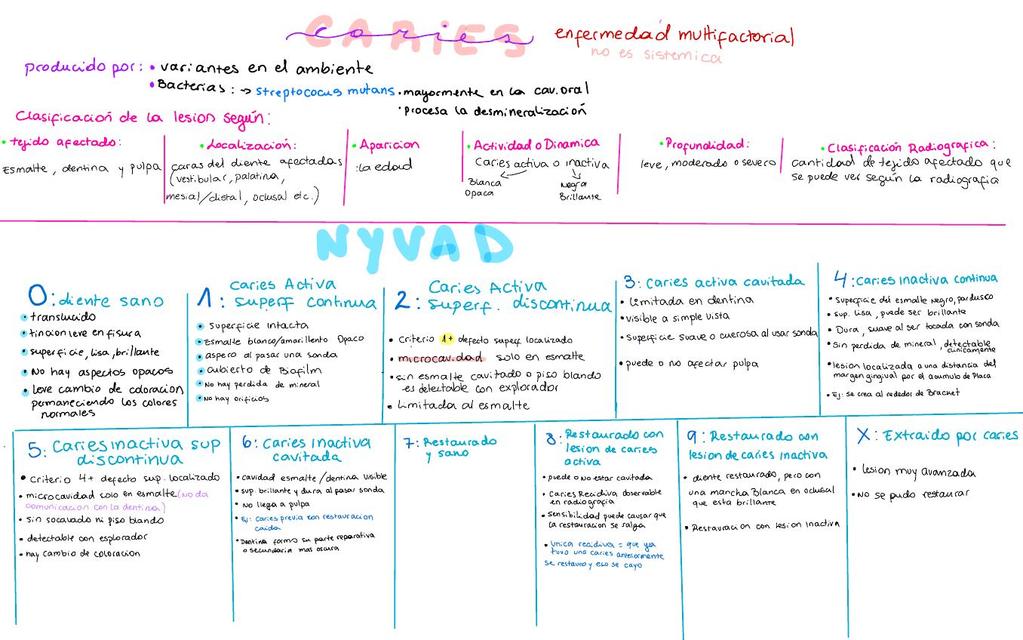 CARIES
caries
enfermedad multifactorial
no es sistemica
producido por: • variantes en el ambiente
• Bacterias: → streptococus mutans • mayormente en la cav. oral
• procesa la desmineralización
Clasificación de la lesion según:
• tejido afectado:
Esmalte, dentina y pulpa
• Localización:
caras del diente afectadas
(vestibular, palatina,
mesial/distal, oclusal etc.)
• Aparicion
: la edad
• Actividad o Dinamica
Caries activa o inactiva
Blanca
Opaca
Negra
Brillante
• Profundidad:
leve, moderado o severo
• Clasificación Radiografica:
cantidad de tejido afectado que
se puede ver según la radiografia
NYVAD
0: diente sano
• translucido
• tincion leve en fisura
• superficie, lisa, brillante
• No hay aspectos opacos
• leve cambio de coloracion
permaneciendo los colores
normales
caries Activa
1: superf continua
• Superficie intacta
• Esmalte blanco/amarillento Opaco
• aspero al pasar una sonda
• cubierto de Biofilm
• No hay perdida de mineral
• No hay orificios
Caries Activa
2: superf. discontinua
• criterio 1+ defecto superf. localizado
• microcavidad solo en esmalte
• sin esmalte cavitado o piso blando
- es detectable con explorador
• Limitada al esmalte
3: Caries activa cavitada
• Limitada en dentina
• visible a simple vista
• Superficie suave o cuerosa al usar sonda
• puede o no afectar pulpa
4: caries inactiva continua
• Superficie del esmalte negro, pardusco
• sup. lisa, puede ser brillante
• Dura, suave al ser tocada con sonda
• Sin perdida de mineral, detectable
clinicamente
• lesion localizada a una distancia del
margen gingival por el acumulo de Placa
• Ej: se crea al rededor de Bracket
5: Caries inactiva sup
discontinua
• criterio 4+ defecto sup. localizado
• microcavidad solo en esmalte (no da
comunicación con la dentina)
• sin socavado ni piso blando
• detectable con explorador
• hay cambio de coloracion
6: caries inactiva
cavitada
• cavidad esmalte/dentina visible
• sup. brillante y dura al pasar sonda
• No llega a pulpa
• Ej: Caries previa con restauracion
caida
• Dentina formo su parte reparativa
o secundaria mas oscura
7: Restaurado
y sano
8: Restaurado con
lesion de caries
activa
• puede o No estar cavitada
• Caries Recidiva observable
en radiografia
• sensibilidad puede causar que
la restauracion se salga
• Unica recidiva = que ya
tuvo una caries anteriormente
se restauro y eso se cayo
9: Restaurado con
lesion de caries inactiva
• diente restaurado, pero con
una mancha Blanca en oclusal
que esta brillante
• Restauracion con lesion inactiva
X: Extraido por caries
• lesion muy avanzada
• no se pudo restaurar